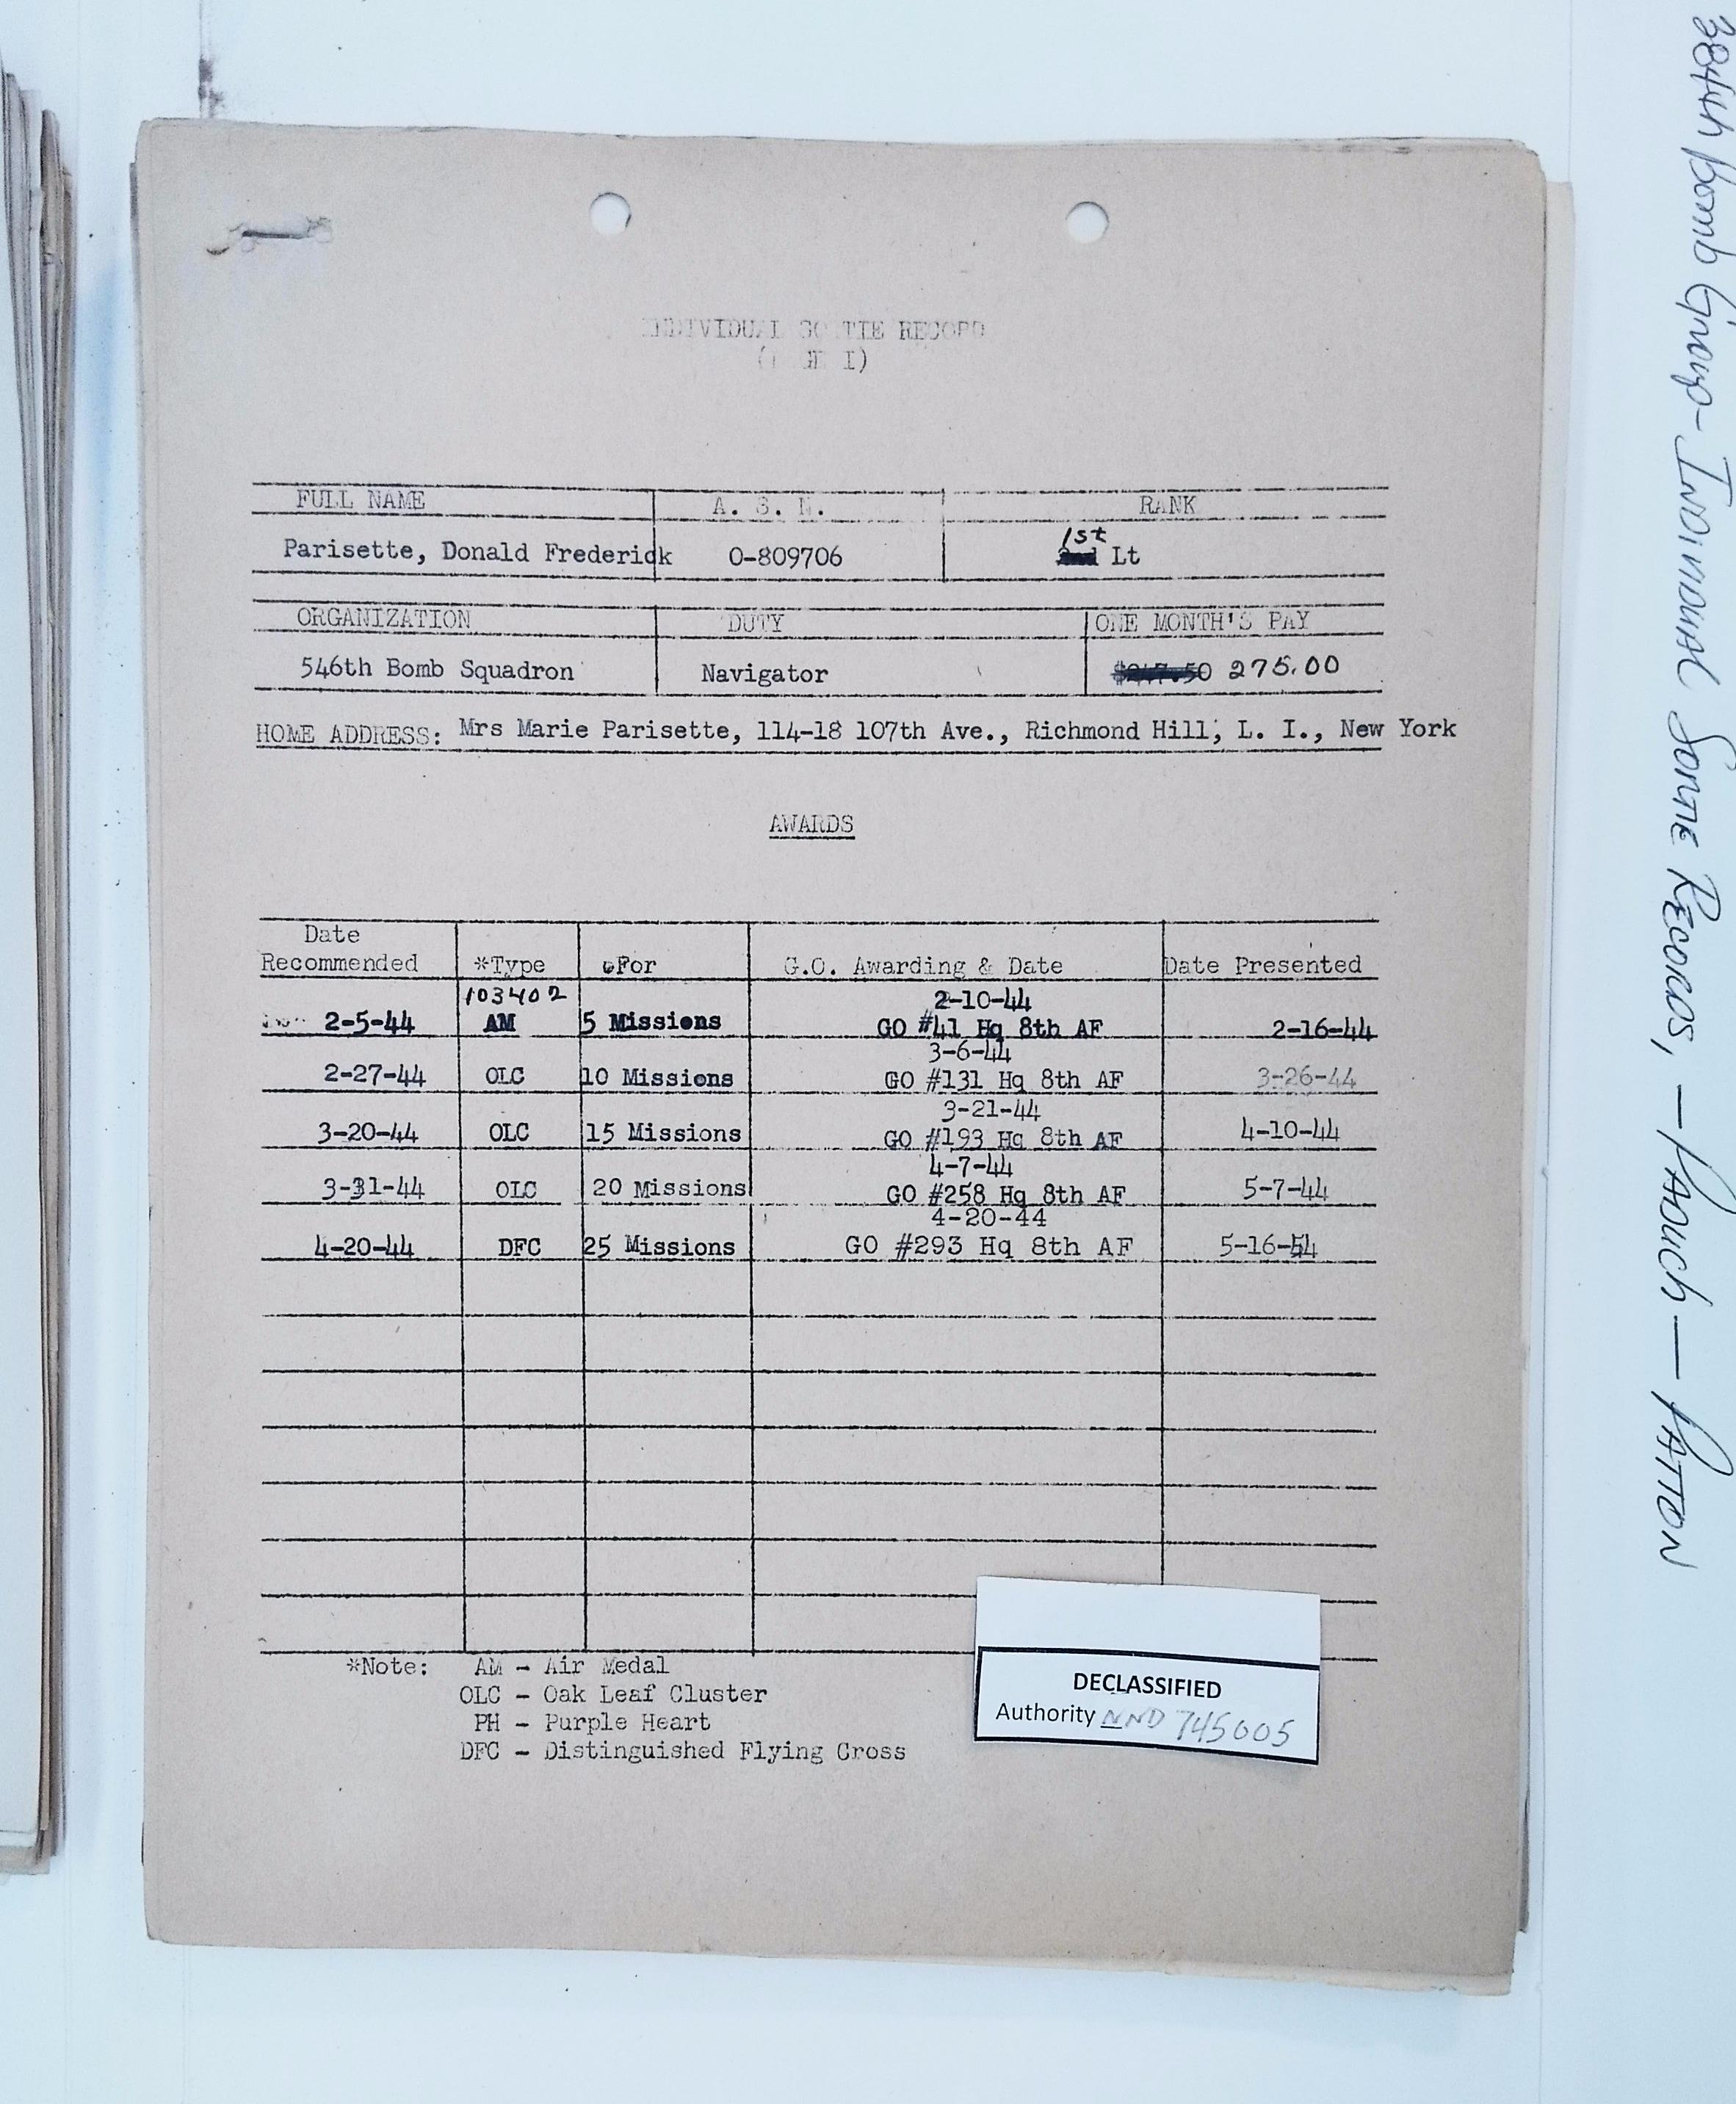 INDIVIDUAL SORTIE RECORD
(PAGE I)
FULL NAME A. S. N. RANK
1st
Parisette, Donald Frederick O-809706 2nd Lt
ORGANIZATION DUTY ONE MONTH'S PAY
546th Bomb Squadron Navigator $247.50 275.00
HOME ADDRESS: Mrs Marie Parisette, 114-18 107th Ave., Richmond Hill, L. I., New York
AWARDS
Date
Recommended *Type For G.O. Awarding & Date Date Presented
103402 2-10-44
2-5-44 AM 5 Missions GO #41 Hq 8th AF 2-16-44
3-6-44
2-27-44 OLC 10 Missions GO #131 Hq 8th AF 3-26-44
3-21-44
3-20-44 OLC 15 Missions GO #193 Hq 8th AF 4-10-44
4-7-44
3-31-44 OLC 20 Missions GO #258 Hq 8th AF 5-7-44
4-20-44
4-20-44 DFC 25 Missions GO #293 Hq 8th AF 5-16-44
*Note: AM - Air Medal
OLC - Oak Leaf Cluster
PH - Purple Heart
DFC - Distinguished Flying Cross
DECLASSIFIED
Authority NND 745005
384th Bomb Group - Individual Sortie Records, - Paduch - Patton